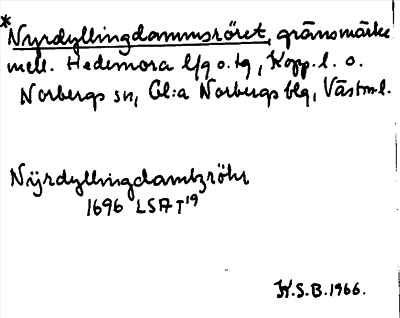 *Nyrdyllingdammsröret, gränsmärke
mell. Hedemora lfg o. tg, Kopp.l. o.
Norbergs sn, Gl:a Norbergs blg, Västm.l.
Nÿrdyllingdambzröhr
1696 LSA T19
K.S.B. 1966.